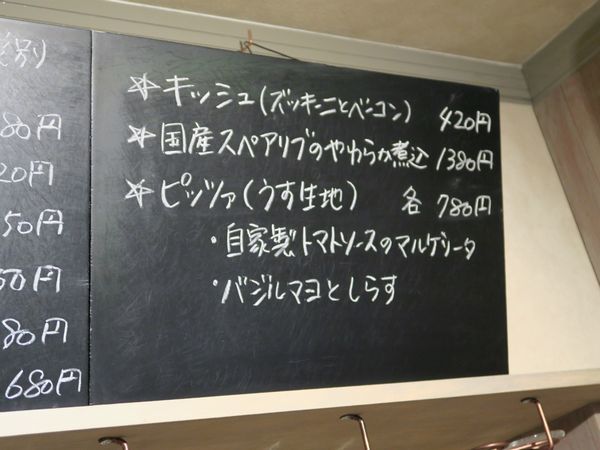 別)
80円
20円
50円
50円
80円
680円
☆キッシュ(ズッキーニとベーコン) 420円
☆国産スペアリブのやわらか煮込 1380円
☆ピッツァ(うす生地) 各 780円
・自家製トマトソースのマルゲリータ
・バジルマヨとしらす